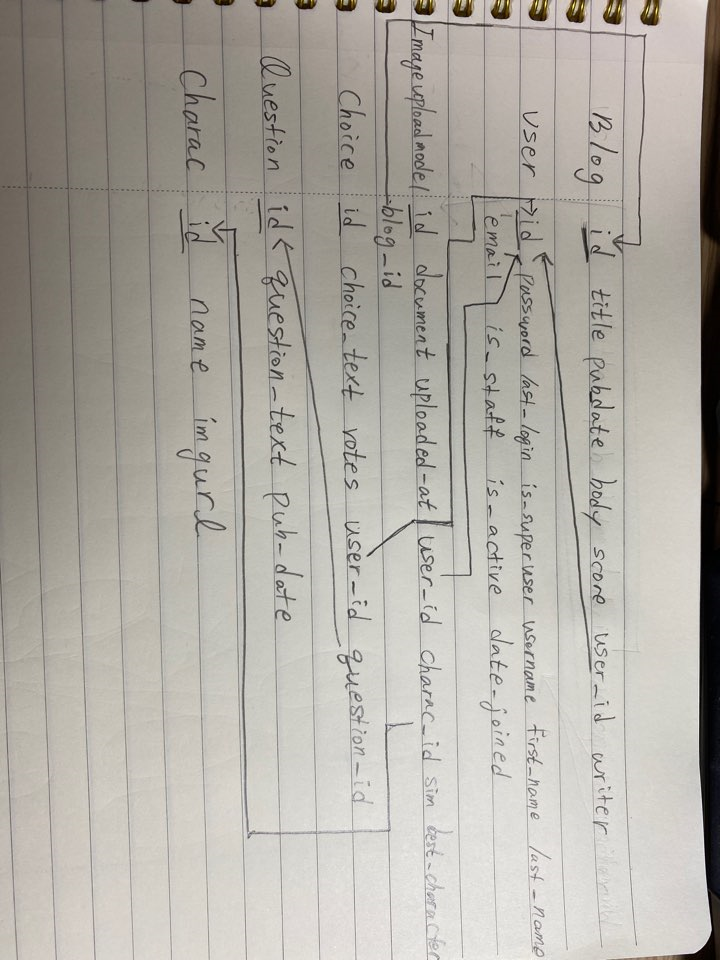 Blog id title pubdate body score user_id writer
User id password last_login is_superuser username first_name last_name
email is_staff is_active date_joined
Imageuploadmodel id document uploaded_at user_id charac_id sim best_character
blog_id
Choice id choice_text votes user_id question_id
Question id question_text pub_date
Charac id name imgurl